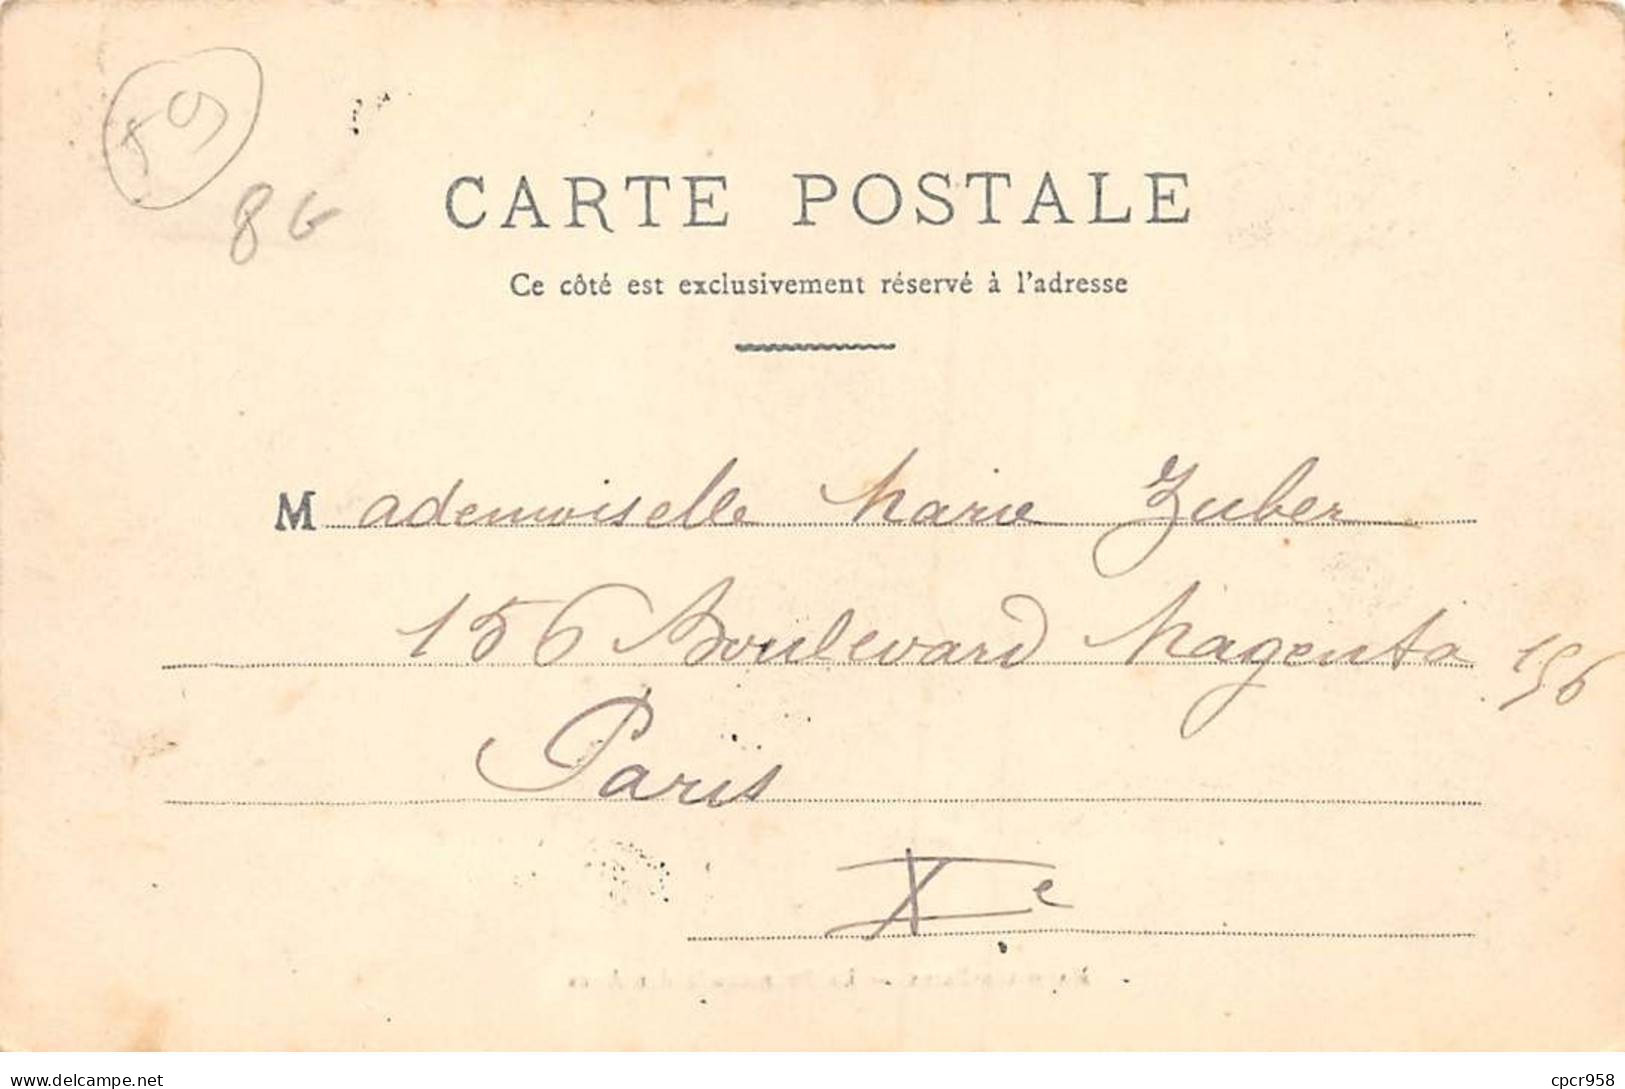 59
86
CARTE POSTALE
Ce côté est exclusivement réservé à l'adresse
Mademoiselle Marie Zuber
156 Boulevard Magenta 156
Paris
Xe
delcampe.net
cpcr958